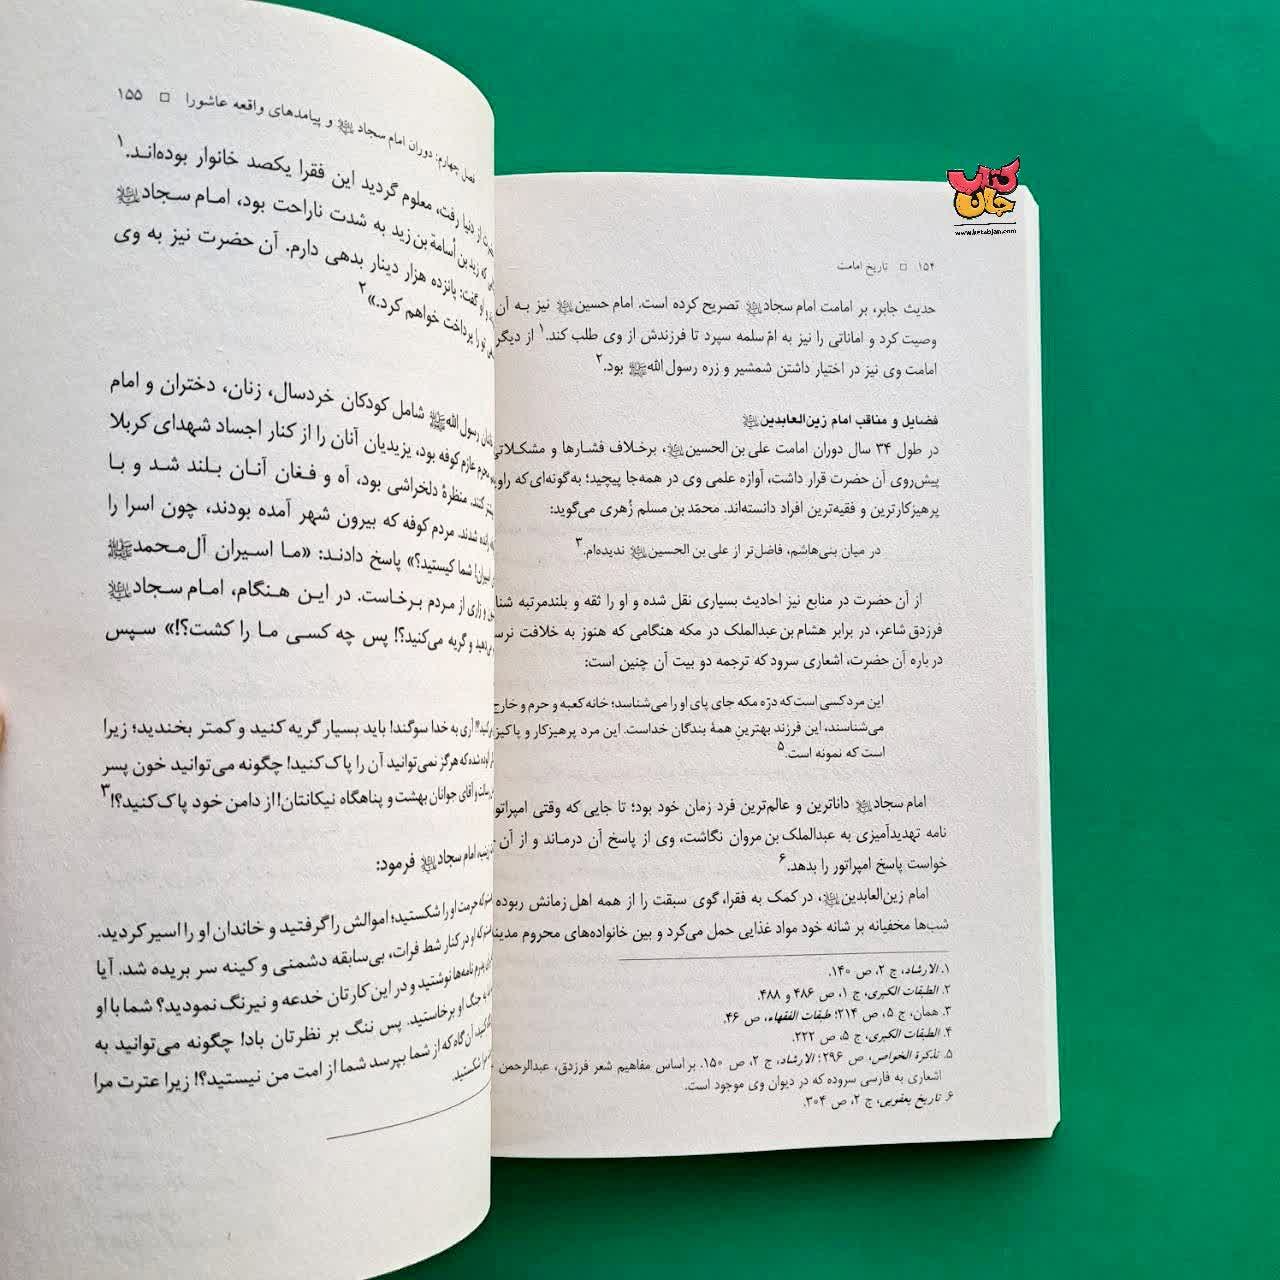 ۱۵۴ □ تاریخ امامت
حدیث جابر، بر امامت امام سجاد تصریح کرده است. امام حسین نیز به آن
وصیت کرد و اماناتی را نیز به امّ سلمه سپرد تا فرزندش از وی طلب کند.۱ از دیگر
امامت وی نیز در اختیار داشتن شمشیر و زره رسول الله بود.۲
فضایل و مناقب امام زین‌العابدین
در طول ۳۴ سال دوران امامت علی بن الحسین، برخلاف فشارها و مشکلاتی
پیش‌روی آن حضرت قرار داشت، آوازه علمی وی در همه‌جا پیچید؛ به‌گونه‌ای که
پرهیزکارترین و فقیه‌ترین افراد دانسته‌اند. محمّد بن مسلم زُهری می‌گوید:
در میان بنی‌هاشم، فاضل‌تر از علی بن الحسین ندیده‌ام.۳
از آن حضرت در منابع نیز احادیث بسیاری نقل شده و او را ثقه و بلندمرتبه
فرزدق شاعر، در برابر هشام بن عبدالملک در مکه هنگامی که هنوز به خلافت
در باره آن حضرت، اشعاری سرود که ترجمه دو بیت آن چنین است:
این مرد کسی است که درّه مکه جای پای او را می‌شناسد؛ خانه کعبه و حرم و خارج
می‌شناسند، این فرزند بهترینِ همهٔ بندگان خداست. این مرد پرهیزکار و
است که نمونه است.۵
امام سجاد داناترین و عالم‌ترین فرد زمان خود بود؛ تا جایی که وقتی
نامه تهدیدآمیزی به عبدالملک بن مروان نگاشت، وی از پاسخ آن درماند و از آن
خواست پاسخ امپراتور را بدهد.۶
امام زین‌العابدین، در کمک به فقرا، گوی سبقت را از همه اهل زمانش ربوده
شب‌ها مخفیانه بر شانه خود مواد غذایی حمل می‌کرد و بین خانواده‌های محروم
۱. الارشاد، ج ۲، ص ۱۴۰.
۲. الطبقات الکبری، ج ۱، ص ۴۸۶ و ۴۸۸.
۳. همان، ج ۵، ص ۲۱۴؛ طبقات الفقهاء، ص ۴۶.
۴. الطبقات الکبری، ج ۵، ص ۲۲۲.
۵. تذکرة الخواص، ص ۲۹۶؛ الارشاد، ج ۲، ص ۱۵۰. بر اساس مفاهیم شعر فرزدق، عبدالرحمن
اشعاری به فارسی سروده که در دیوان وی موجود است.
۶. تاریخ یعقوبی، ج ۲، ص ۳۰۴.
فصل چهارم: دوران امام سجاد و پیامدهای واقعه عاشورا □ ۱۵۵
از دنیا رفت، معلوم گردید این فقرا یکصد خانوار بوده‌اند.۱
که زید بن أسامة بن زید به شدت ناراحت بود، امام سجاد
و او گفت: پانزده هزار دینار بدهی دارم. آن حضرت نیز به وی
تو را پرداخت خواهم کرد.»۲
رسول الله شامل کودکان خردسال، زنان، دختران و امام
محرم عازم کوفه بود، یزیدیان آنان را از کنار اجساد شهدای کربلا
کنند. منظرهٔ دلخراشی بود، آه و فغان آنان بلند شد و با
رانده شدند. مردم کوفه که بیرون شهر آمده بودند، چون اسرا را
اسیران! شما کیستید؟» پاسخ دادند: «ما اسیران آل‌محمد
و زاری از مردم برخاست. در این هنگام، امام سجاد
و گریه می‌کنید؟! پس چه کسی ما را کشت؟!» سپس
آری به خدا سوگند! باید بسیار گریه کنید و کمتر بخندید؛ زیرا
آلوده شده که هرگز نمی‌توانید آن را پاک کنید! چگونه می‌توانید خون پسر
رسالت و آقای جوانان بهشت و پناهگاه نیکانتان! از دامن خود پاک کنید؟!۳
زینب، امام سجاد فرمود:
که حرمت او را شکستید؛ اموالش را گرفتید و خاندان او را اسیر کردید.
که او در کنار شط فرات، بی‌سابقه دشمنی و کینه سر بریده شد. آیا
پدرم نامه‌ها نوشتید و در این کارتان خدعه و نیرنگ نمودید؟ شما با او
به جنگ او برخاستید. پس ننگ بر نظرتان باد! چگونه می‌توانید به
کنید آن گاه که از شما بپرسد شما از امت من نیستید؟! زیرا عترت مرا
شکستید.
کتاب جان
www.ketabjan.com